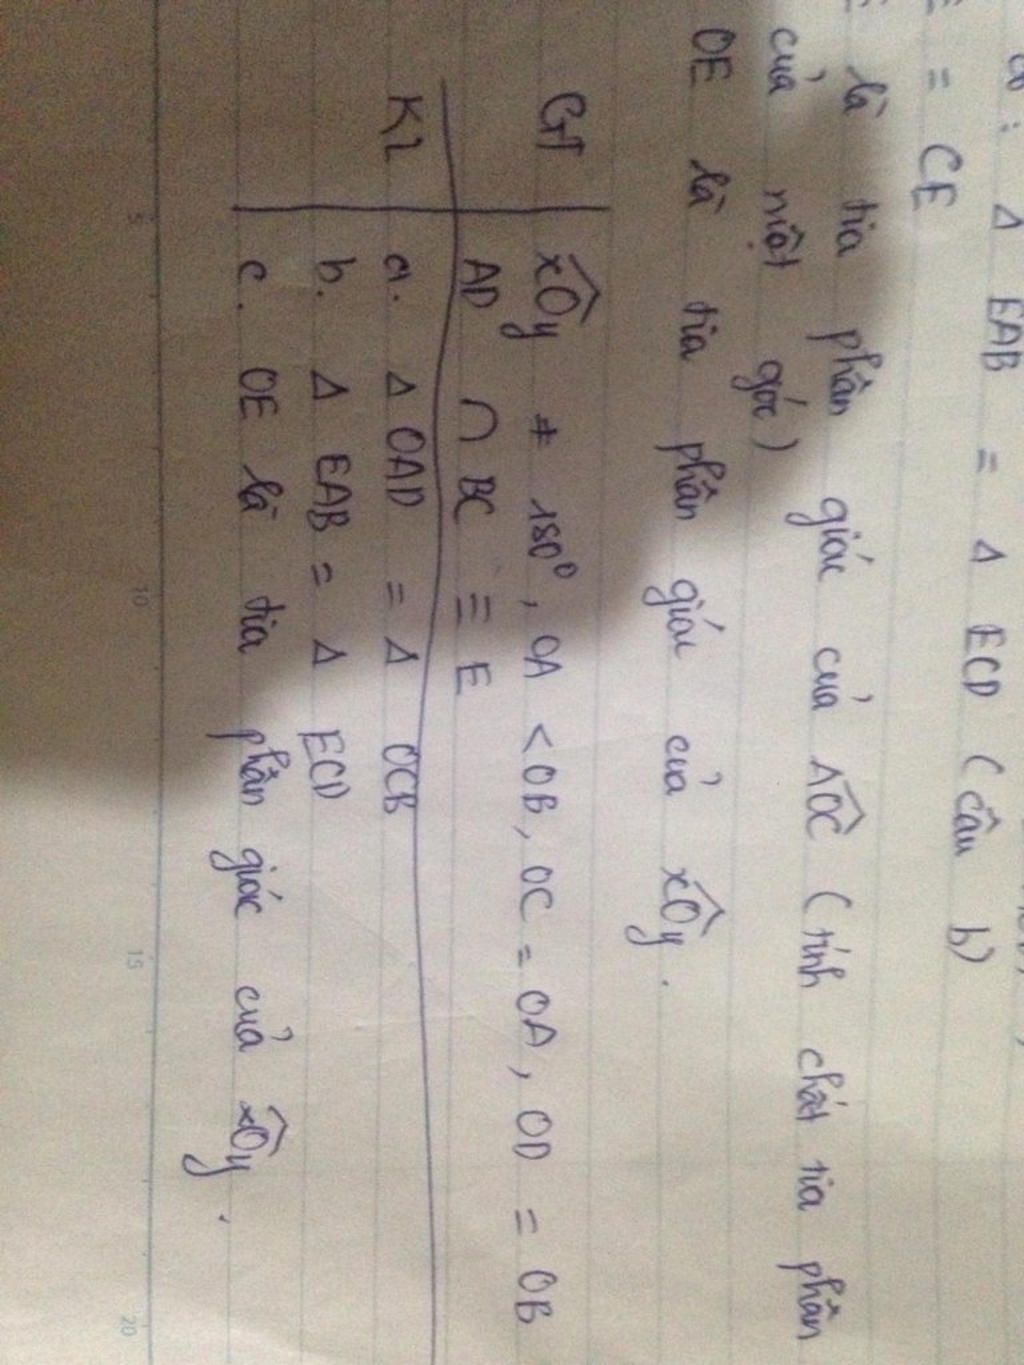 có : Δ EAB = Δ ECD (câu b)
= CE
là tia phân giác của AOC (tính chất tia phân
của một góc)
OE là tia phân giác của xOy.
GT xOy ≠ 180°, OA < OB, OC = OA, OD = OB
AD ∩ BC ≡ E
KL a. Δ OAD = Δ OCB
b. Δ EAB = Δ ECD
c. OE là tia phân giác của xOy.
5 10 15 20